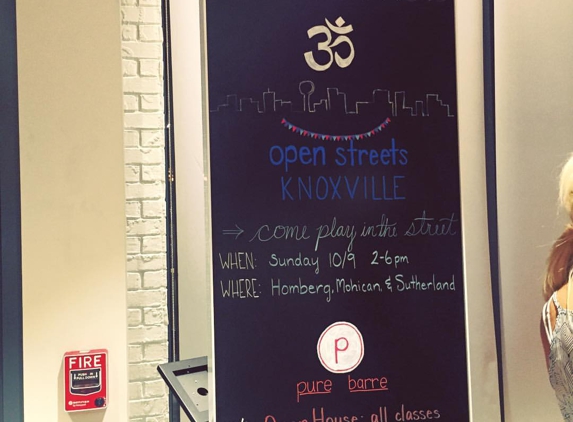 ॐ
open streets
KNOXVILLE
→ come play in the street
WHEN: Sunday 10/9 2-6pm
WHERE: Homberg, Mohican, & Sutherland
p
pure barre
Open House: all classes
FIRE
PUSH IN
PULL DOWN